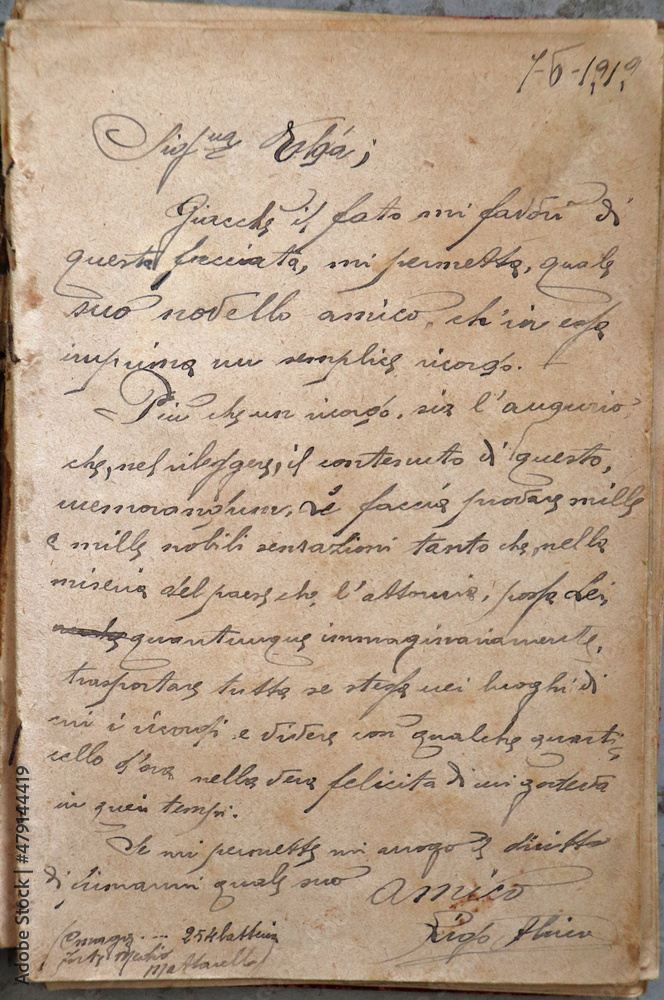 7-5-1919
Sig.na Elsa;
Giacchè il fato mi favorì di
questa facciata, mi permetta, quale
suo novello amico, ch'in essa
imprima un semplice ricordo.
Più che un ricordo, sia l'augurio
che, nel rileggere, il contenuto di questo,
memorandum, Le faccia provare mille
e mille nobili sensazioni tanto che, nella
miseria del paese che l'attornia, possa Lei,
quantunque immaginariamente,
trasportare tutta se stessa nei luoghi di
cui i ricordi e vivere con qualche quarti-
cello d'ora nella vera felicità di cui godeva
in quei tempi.
Se mi permette mi arrogo il diritto
di firmarmi quale suo amico
254 batteria
Forte Medio
Mattarello)
Adobe Stock | #479144419
Adobe Stock